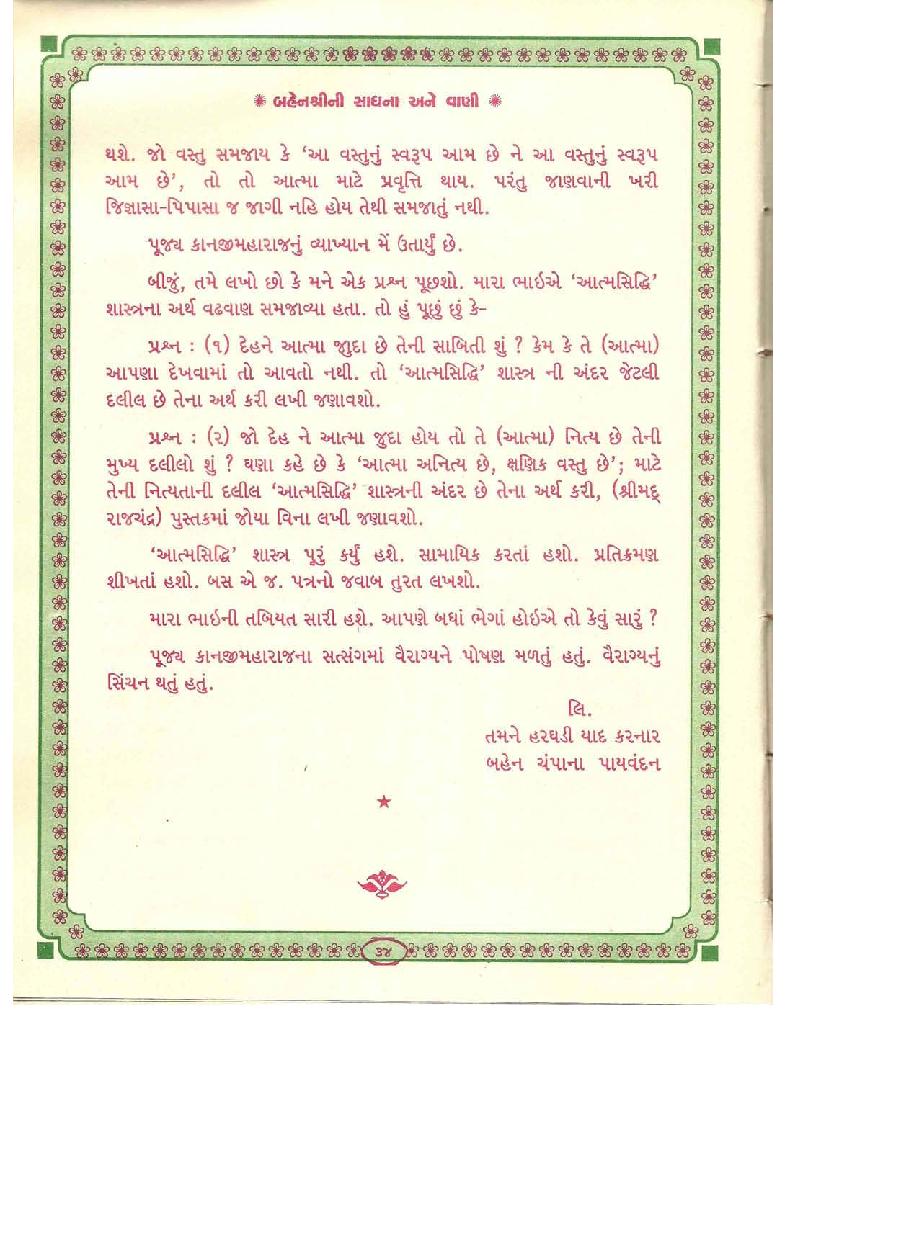 ✺ બહેનશ્રીની સાધના અને વાણી ✺
થશે. જો વસ્તુ સમજાય કે ‘આ વસ્તુનું સ્વરૂપ આમ છે ને આ વસ્તુનું સ્વરૂપ
આમ છે’, તો તો આત્મા માટે પ્રવૃત્તિ થાય. પરંતુ જાણવાની ખરી
જિજ્ઞાસા-પિપાસા જ જાગી નહિ હોય તેથી સમજાતું નથી.
પૂજ્ય કાનજીમહારાજનું વ્યાખ્યાન મેં ઉતાર્યું છે.
બીજું, તમે લખો છો કે મને એક પ્રશ્ન પૂછશો. મારા ભાઇએ ‘આત્મસિદ્ધિ’
શાસ્ત્રના અર્થ વઢવાણ સમજાવ્યા હતા. તો હું પૂછું છું કે-
પ્રશ્ન : (૧) દેહને આત્મા જુદા છે તેની સાબિતી શું ? કેમ કે તે (આત્મા)
આપણા દેખવામાં તો આવતો નથી. તો ‘આત્મસિદ્ધિ’ શાસ્ત્ર ની અંદર જેટલી
દલીલ છે તેના અર્થ કરી લખી જણાવશો.
પ્રશ્ન : (૨) જો દેહ ને આત્મા જુદા હોય તો તે (આત્મા) નિત્ય છે તેની
મુખ્ય દલીલો શું ? ઘણા કહે છે કે ‘આત્મા અનિત્ય છે, ક્ષણિક વસ્તુ છે’; માટે
તેની નિત્યતાની દલીલ ‘આત્મસિદ્ધિ’ શાસ્ત્રની અંદર છે તેના અર્થ કરી, (શ્રીમદ્
રાજચંદ્ર) પુસ્તકમાં જોયા વિના લખી જણાવશો.
‘આત્મસિદ્ધિ’ શાસ્ત્ર પૂરું કર્યું હશે. સામાયિક કરતાં હશો. પ્રતિક્રમણ
શીખતાં હશો. બસ એ જ. પત્રનો જવાબ તુરત લખશો.
મારા ભાઇની તબિયત સારી હશે. આપણે બધાં ભેગાં હોઇએ તો કેવું સારું ?
પૂજ્ય કાનજીમહારાજના સત્સંગમાં વૈરાગ્યને પોષણ મળતું હતું. વૈરાગ્યનું
સિંચન થતું હતું.
લિ.
તમને હરઘડી યાદ કરનાર
બહેન ચંપાના પાયવંદન
★
૩૪